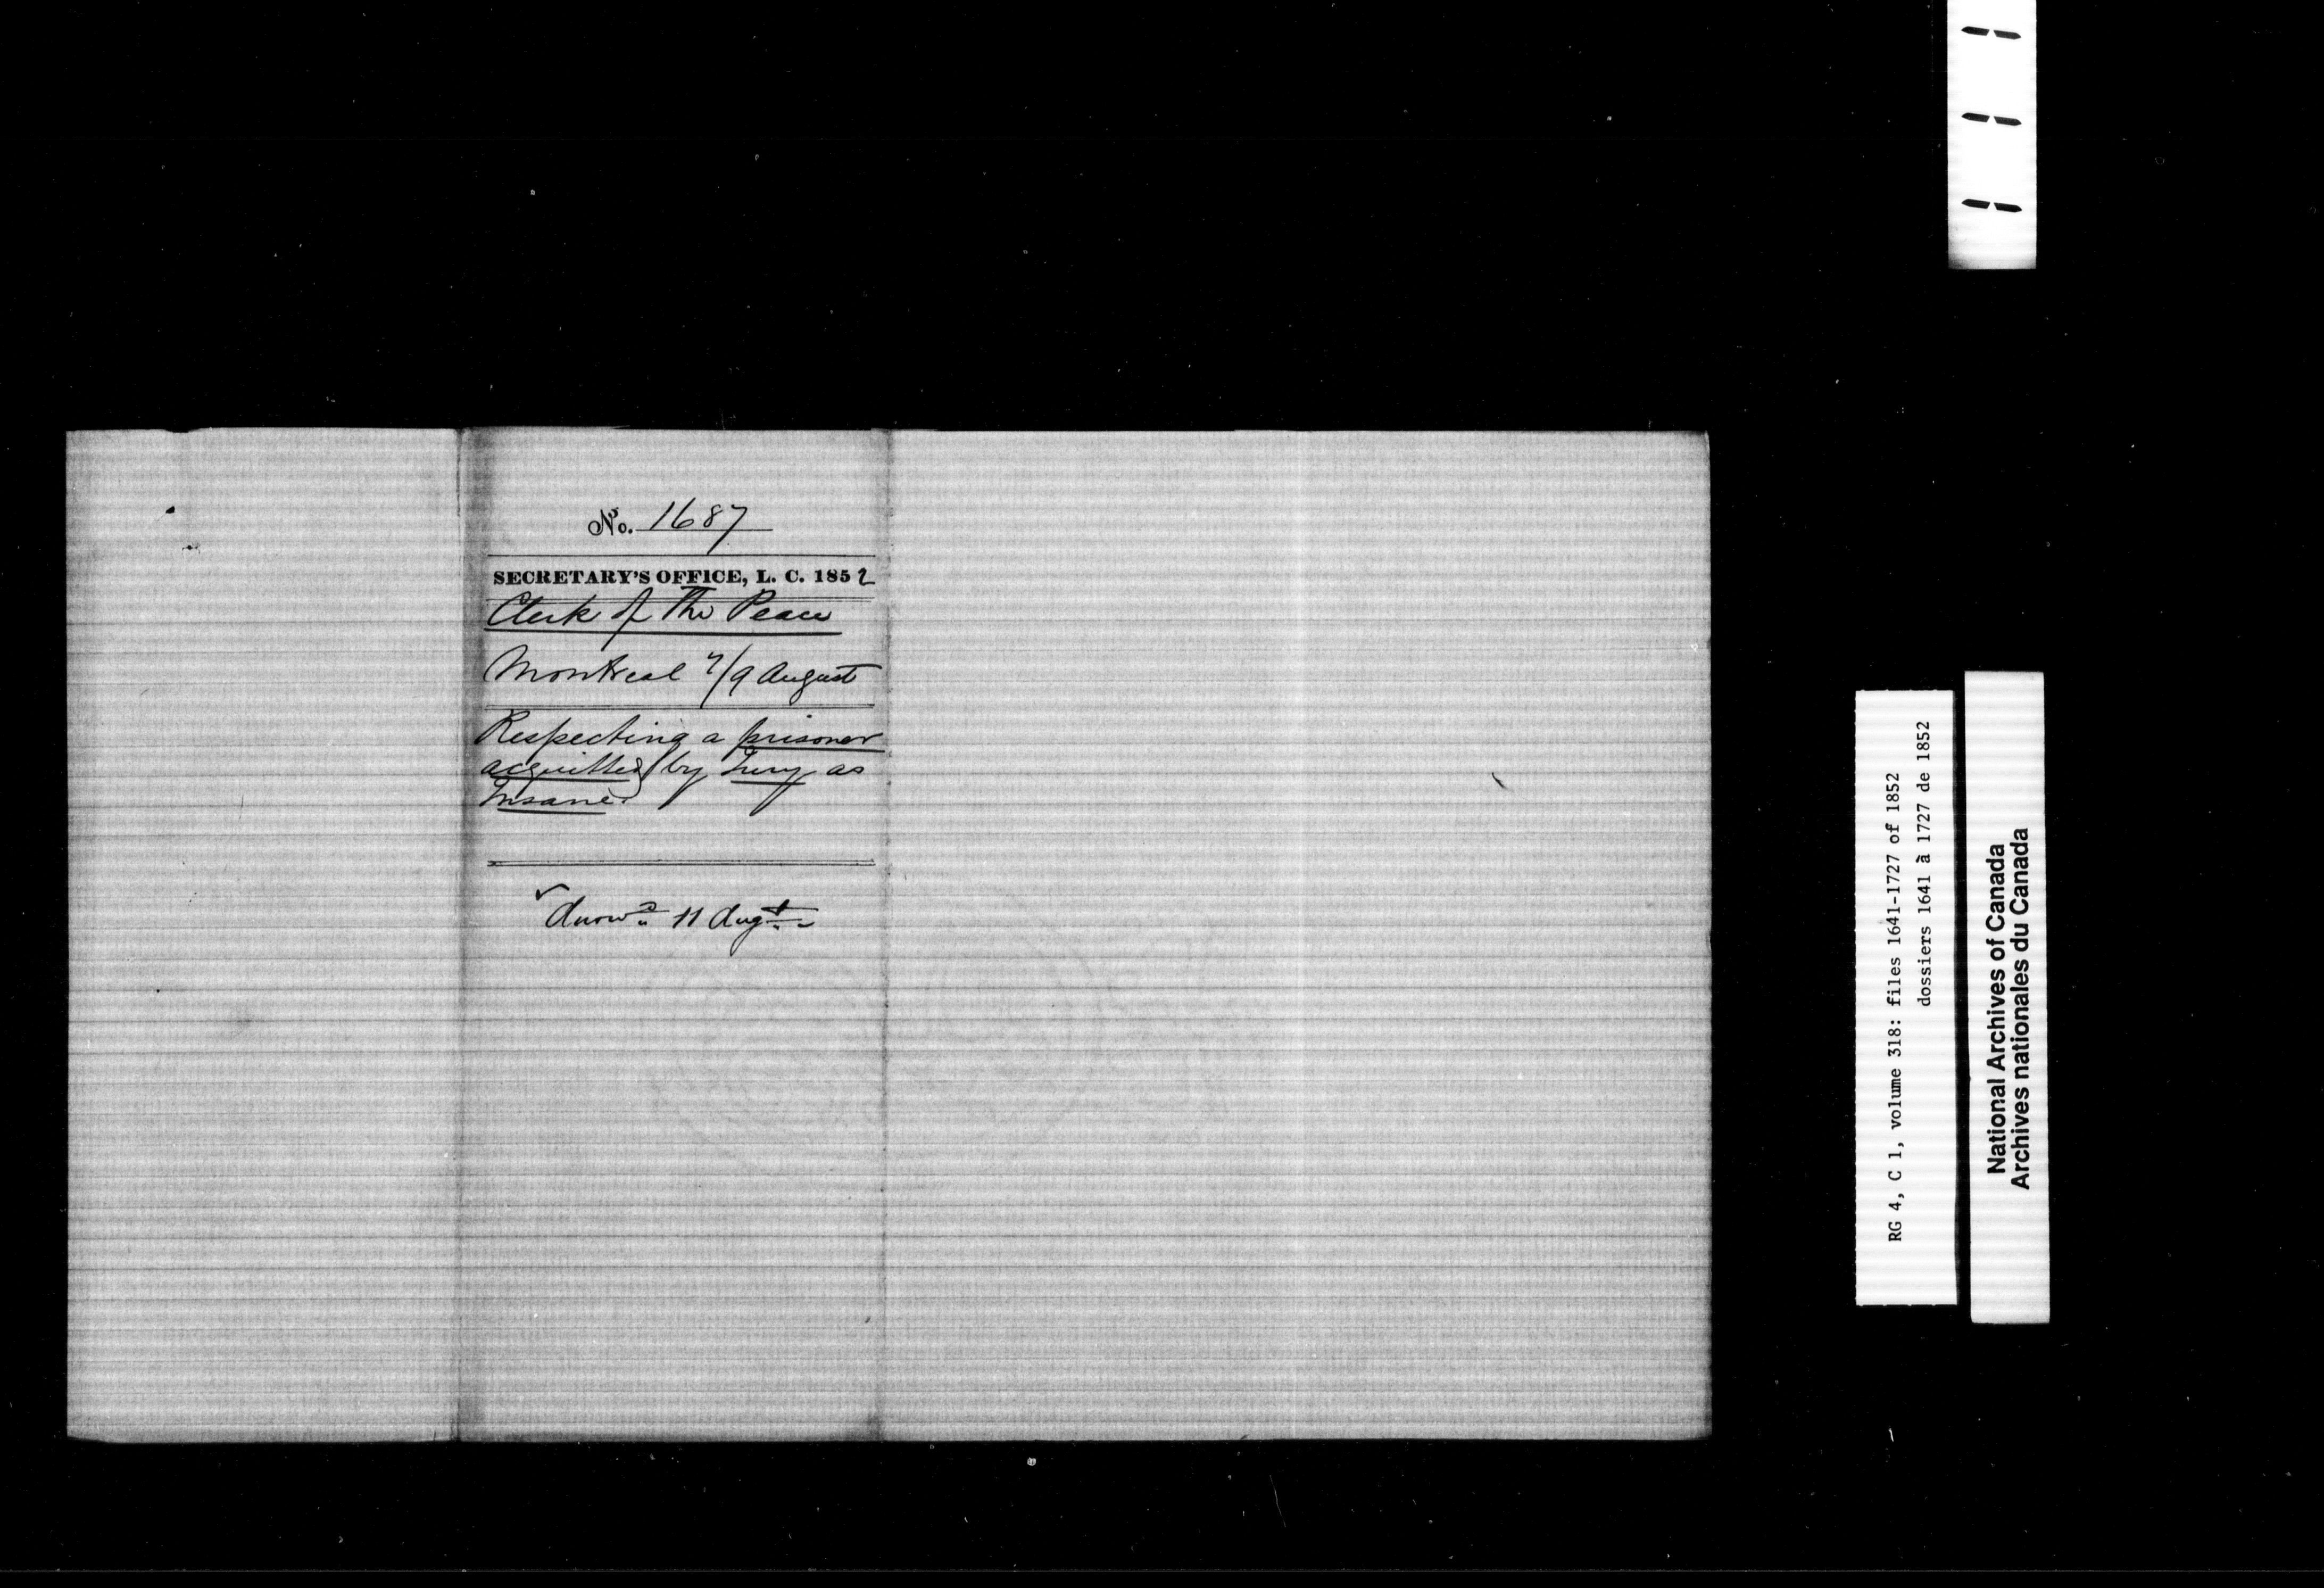 No. 1687
SECRETARY'S OFFICE, L. C. 1852
Clerk of The Peace
Montreal 7/9 August
Respecting a prisoner
acquitted by Jury as
Insane.
Answd 11 Augt
RG 4, C 1, volume 318: files 1641-1727 of 1852
dossiers 1641 à 1727 de 1852
National Archives of Canada
Archives nationales du Canada